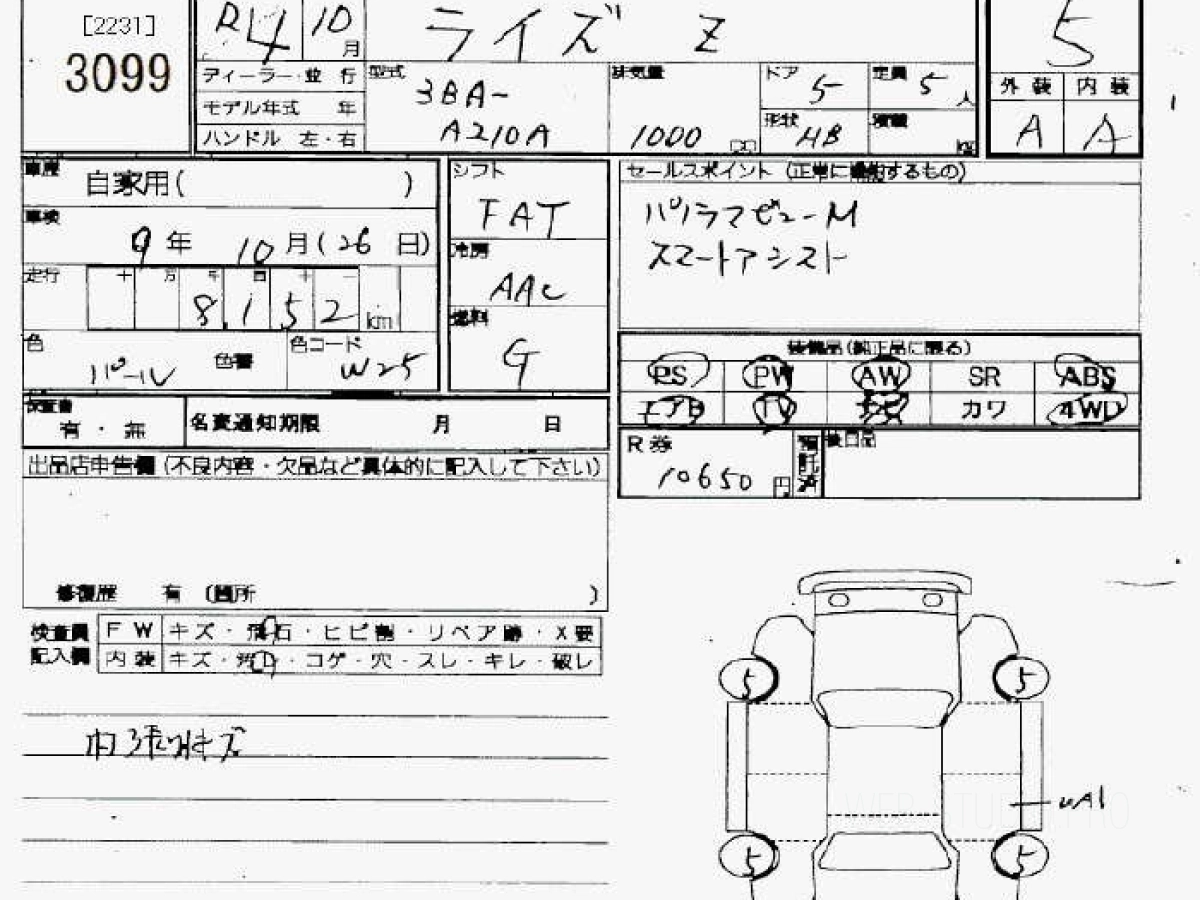 [2231]
3099
R4 10月
ライズ Z
5
ディーラー・並行
モデル年式 年
ハンドル 左・右
型式 3BA-
A210A
排気量
1000 cc
ドア 5
定員 5 人
形状 HB
積載 kg
外装 内装
A A
車歴 自家用( )
車検 9年 10月(26日)
走行 十 万 千 百 十 一
8,152 km
色 パール
色替
色コード W25
シフト
FAT
冷房
AAC
燃料
G
セールスポイント (正常に機能するもの)
パノラマビューM
スマートアシスト
装備品(純正品に限る)
PS PW AW SR ABS
エアB TV ナビ カワ 4WD
R券
10650円
預託済
後日品
保証書
有・無
名変通知期限 月 日
出品店申告欄 (不良内容・欠品など具体的に記入して下さい)
修復歴 有 (箇所 )
検査員
記入欄
FW キズ・飛石・ヒビ割・リペア跡・X要
内装 キズ・汚れ・コゲ・穴・スレ・キレ・破レ
内張りキズ
5 5
UA1
WEB STUDIO PRO
5 5